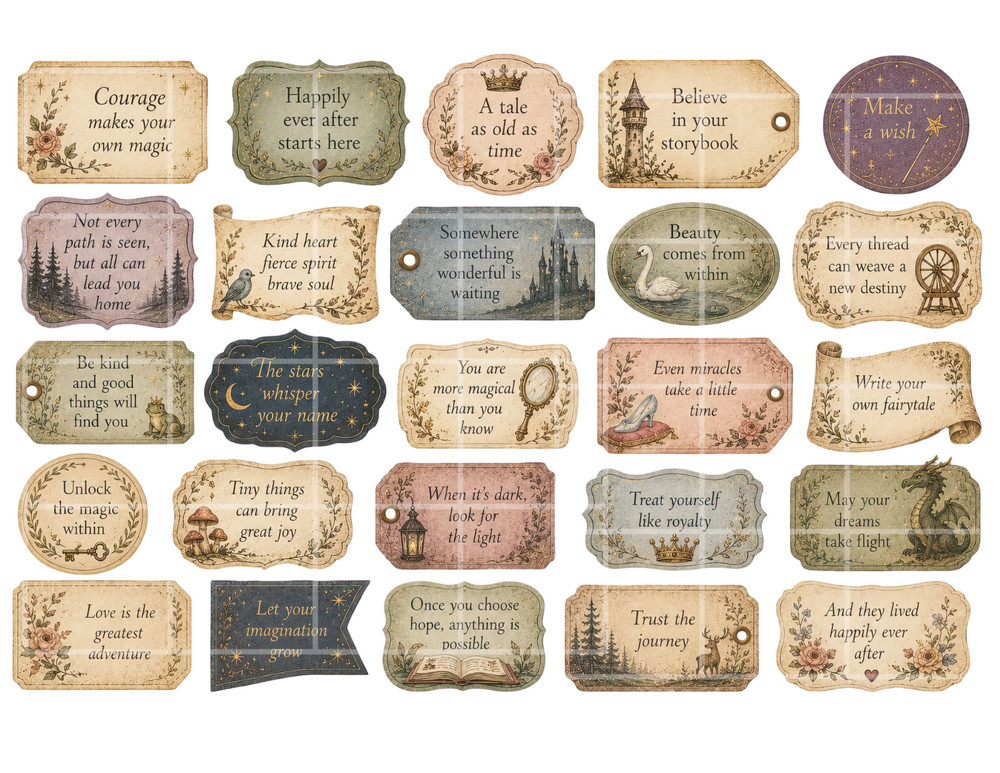 Courage
makes your
own magic
Happily
ever after
starts here
A tale
as old as
time
Believe
in your
storybook
Make
a wish
Not every
path is seen,
but all can
lead you
home
Kind heart
fierce spirit
brave soul
Somewhere
something
wonderful is
waiting
Beauty
comes from
within
Every thread
can weave a
new destiny
Be kind
and good
things will
find you
The stars
whisper
your name
You are
more magical
than you
know
Even miracles
take a little
time
Write your
own fairytale
Unlock
the magic
within
Tiny things
can bring
great joy
When it's dark,
look for
the light
Treat yourself
like royalty
May your
dreams
take flight
Love is the
greatest
adventure
Let your
imagination
grow
Once you choose
hope, anything is
possible
Trust the
journey
And they lived
happily ever
after